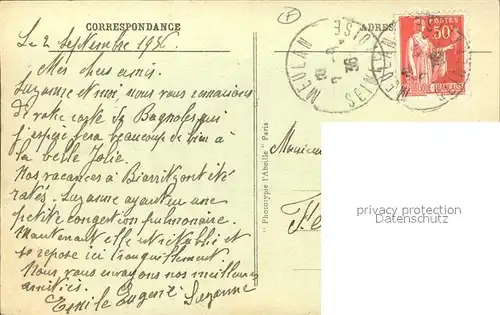 CORRESPONDANCE
ADRES
Le 2 Septembre 1936
Mes chers amis.
Suzanne et moi, nous vous remercions
de votre carte de Bagnoles qui
j'espère fera beaucoup de bien à
la belle Jolie.
Nos vacances à Biarritz ont été
ratés. Suzanne ayant eu une
petite congestion pulmonaire.
Maintenant elle est rétablie et
se repose ici tranquillement
Nous vous envoyons nos meilleures
amitiés.
Emile Eugenie Suzanne
"Phototypie l'Abeille" Paris
MEULAN
SEINE
OISE
36
MEULAN
POSTES
50c
Monsieur
privacy protection
www.ansichtskarten-center.de